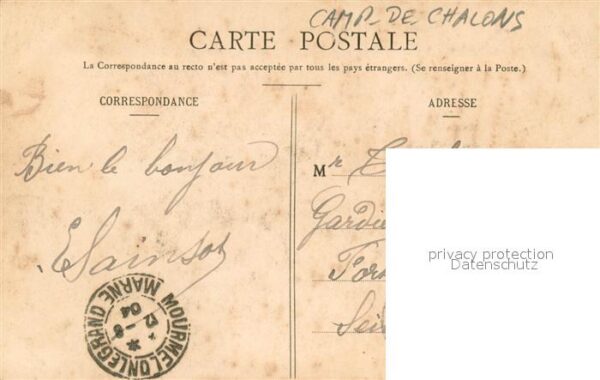 CAMP-DE CHALONS
CARTE POSTALE
La Correspondance au recto n'est pas acceptée par tous les pays étrangers. (Se renseigner à la Poste.)
CORRESPONDANCE
ADRESSE
Bien le bonjour
E Sainsot
Mr
privacy protection
Datenschutz
MOURMELON LE GRAND MARNE
04